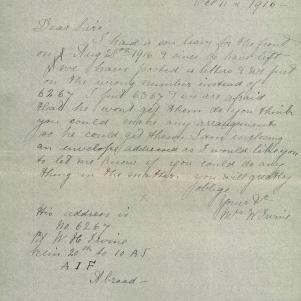 Oct 11th 1916
Dear Sirs,
I had a son leave for the front
on Aug 28th 1916 & since he have left
I've posted letters & we put
on the wrong number instead of
6267 I put 6367 & we are afraid
that he wont get them do you think
you could make any arrangements
so he could get them. I am enclosing
an envelope addressed as I would like you
to let me know if you could do any
thing in the matter. you will greatly
oblige
Yours &c
Mrs W. Irvine
His address is
No 6267
Pt W. H. Irvine
Rein 20th to 10 A I
A I F
Abroad